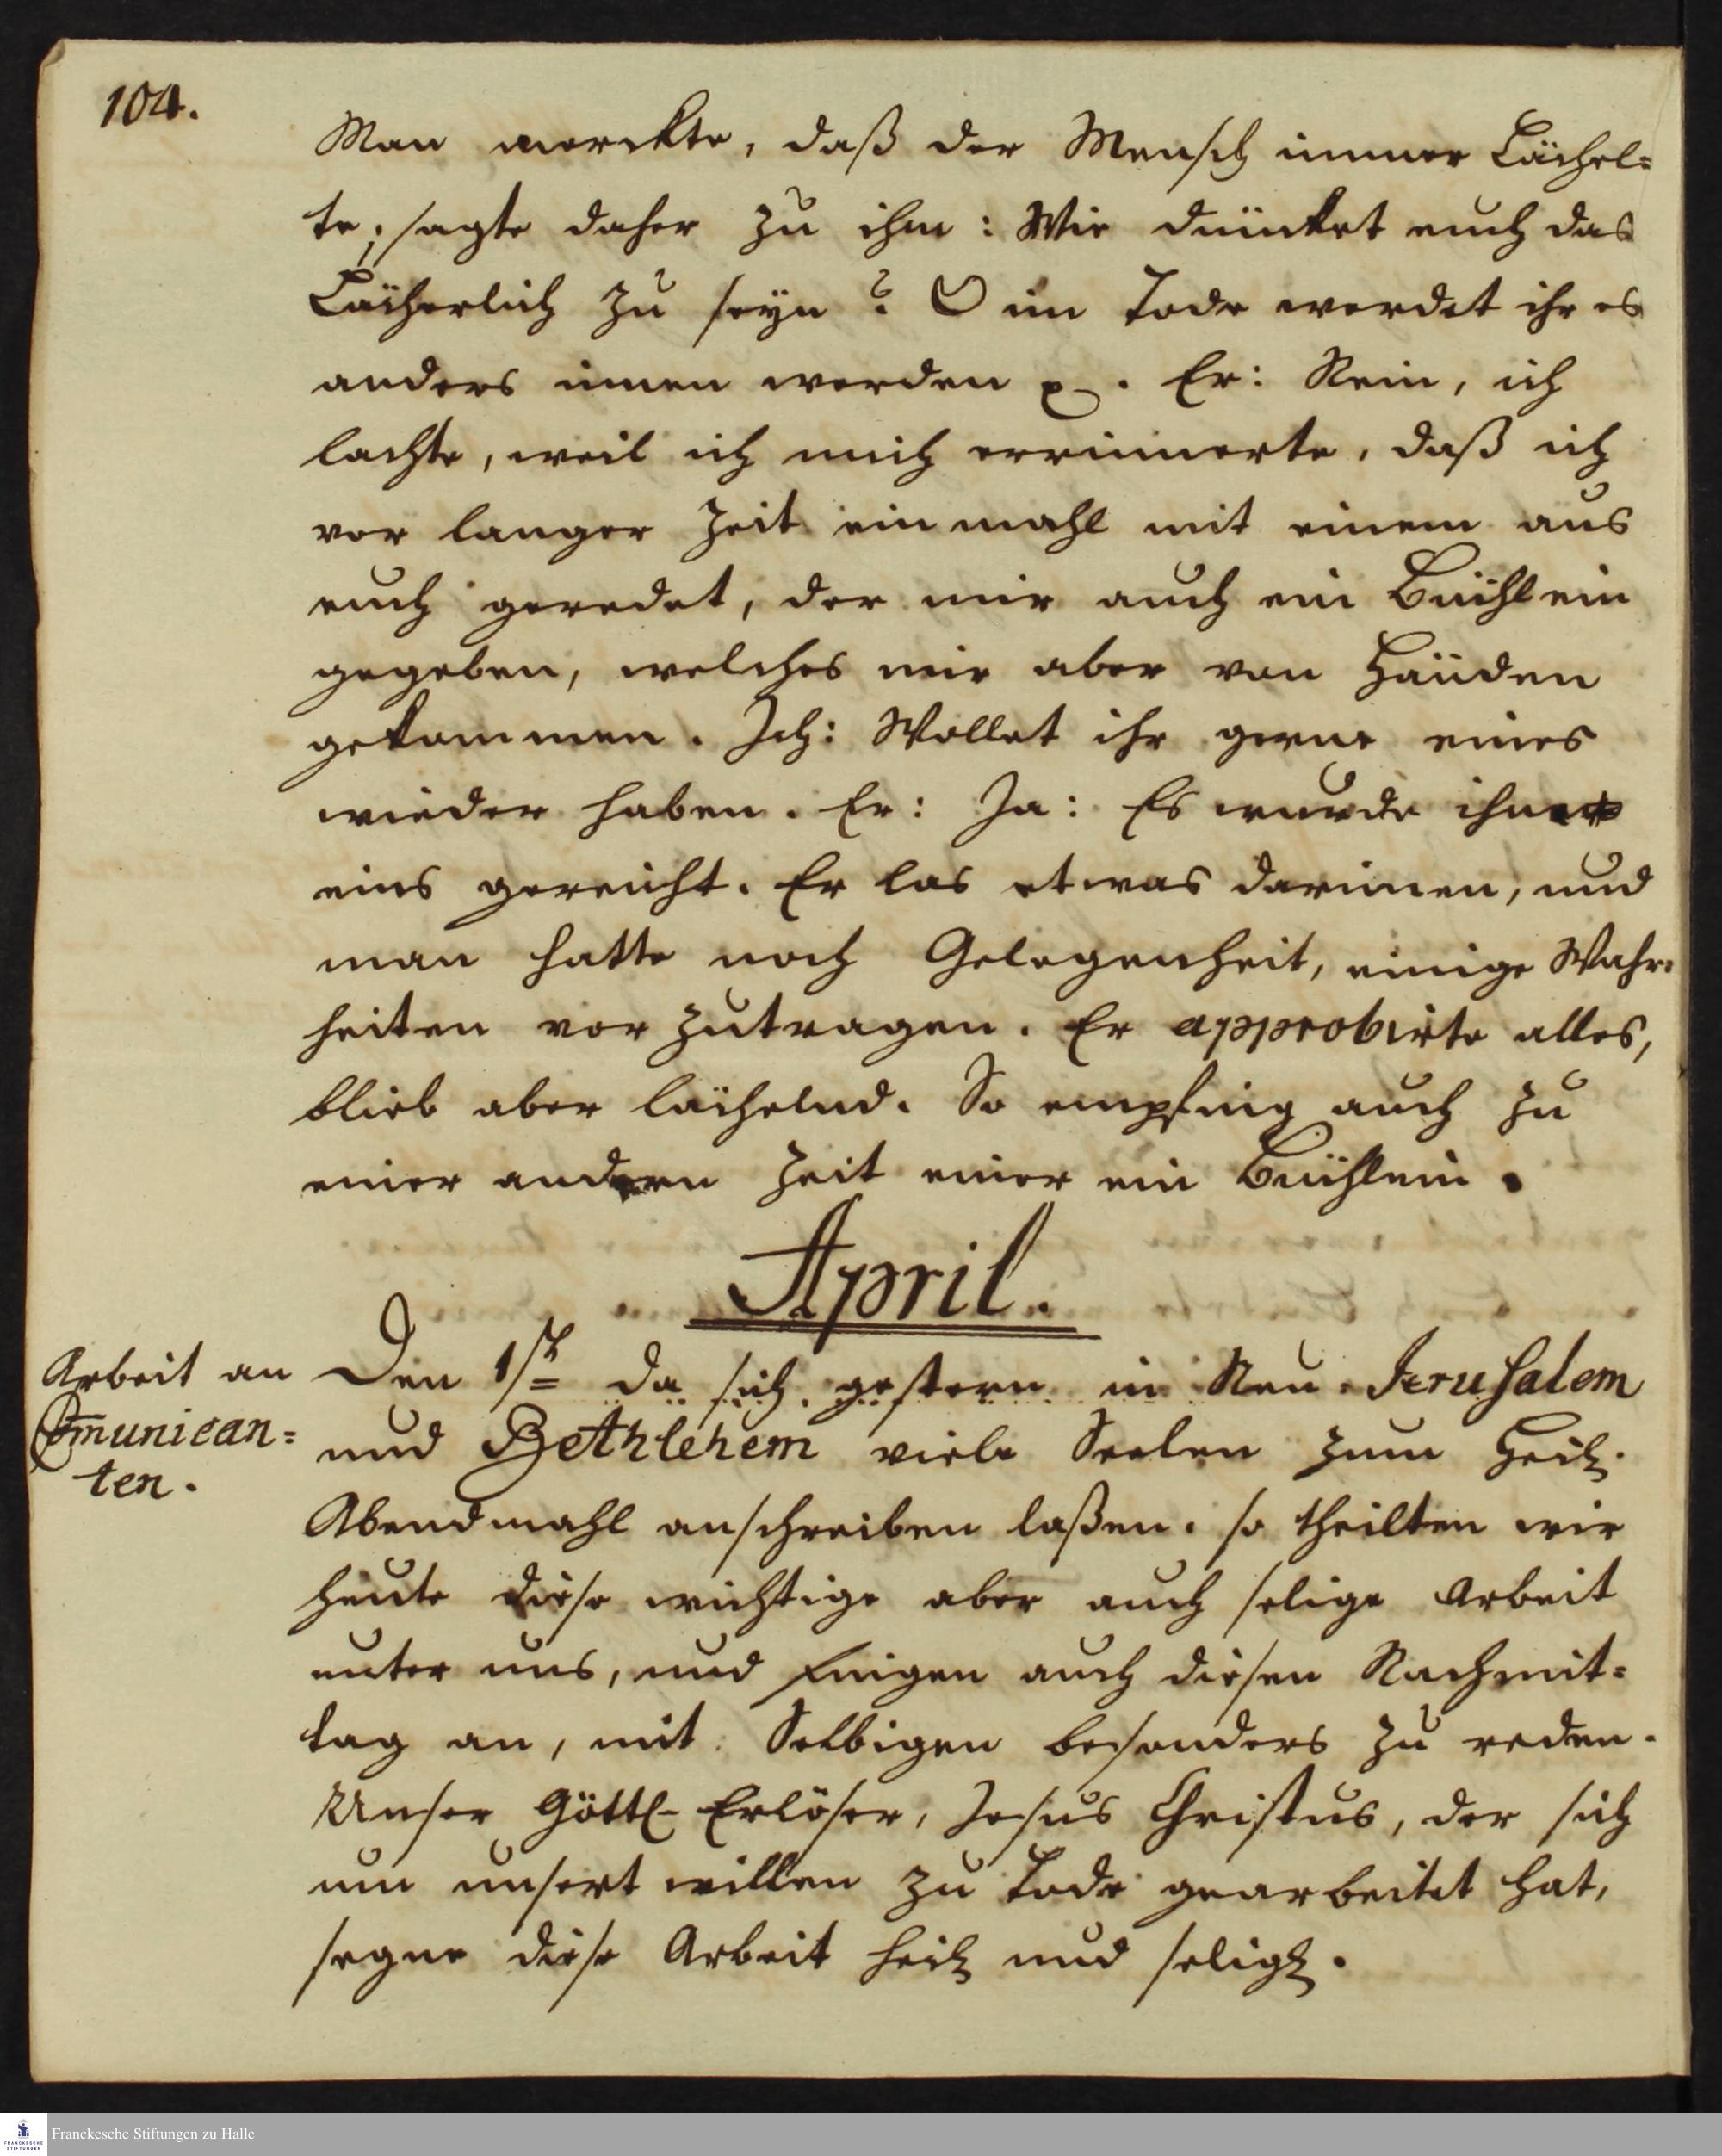 104.
Man merckte, daß der Mensch immer Lächel=
te; sagte daher zu ihm: Wie düncket euch das
Lächerlich zu seyn? O im Tode werdet ihr es
anders innen werden p. Er: Nein, ich
lachte, weil ich mich errinnerte, daß ich
vor langer Zeit einmahl mit einem aus
euch geredet, der mir auch ein Büchlein
gegeben, welches mir aber von Händen
gekommen. Ich: Wollet ihr gerne eines
wieder haben. Er: Ja: Es wurde ihm
eins gereicht. Er las etwas darinnen, und
man hatte noch Gelegenheit, einige Wahr=
heiten vorzutragen. Er approbirte alles,
blieb aber lächelnd. So empfing auch zu
einer andern Zeit einer ein Büchlein.
April.
Arbeit an
Com̅unican=
ten.
Den 1st= da sich gestern in Neu-Jerusalem
und Bethlehem viele Seelen zum Heil.
Abendmahl anschreiben laßen, so theilten wir
heute diese wichtige aber auch selige Arbeit
unter uns, und fingen auch diesen Nachmit=
tag an, mit Selbigen besonders zu reden.
Unser Göttl. Erlöser, Jesus Christus, der sich
um unsert willen zu Tode gearbeitet hat,
segne diese Arbeit heil. und selig.
FRANCKESCHE
STIFTUNGEN
Franckesche Stiftungen zu Halle